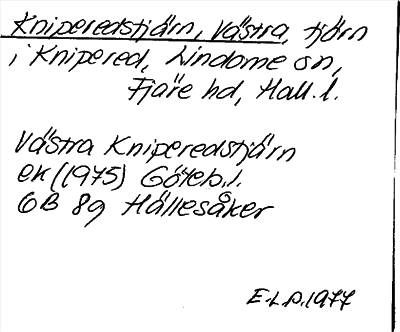 Kniperedstjärn, Västra, tjärn
i Knipered, Lindome sn,
Fjäre hd, Hall. l.
Västra Kniperedstjärn
ek (1975) Göteb. l.
6B 8g Hällesåker
E.L.P. 1977